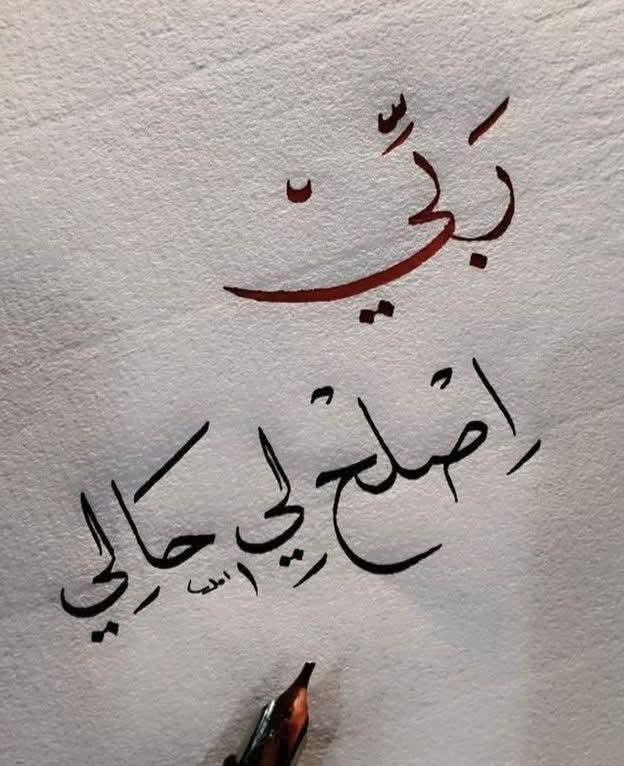 رَبِّيْ
اِصْلحْ لِي حَالِي